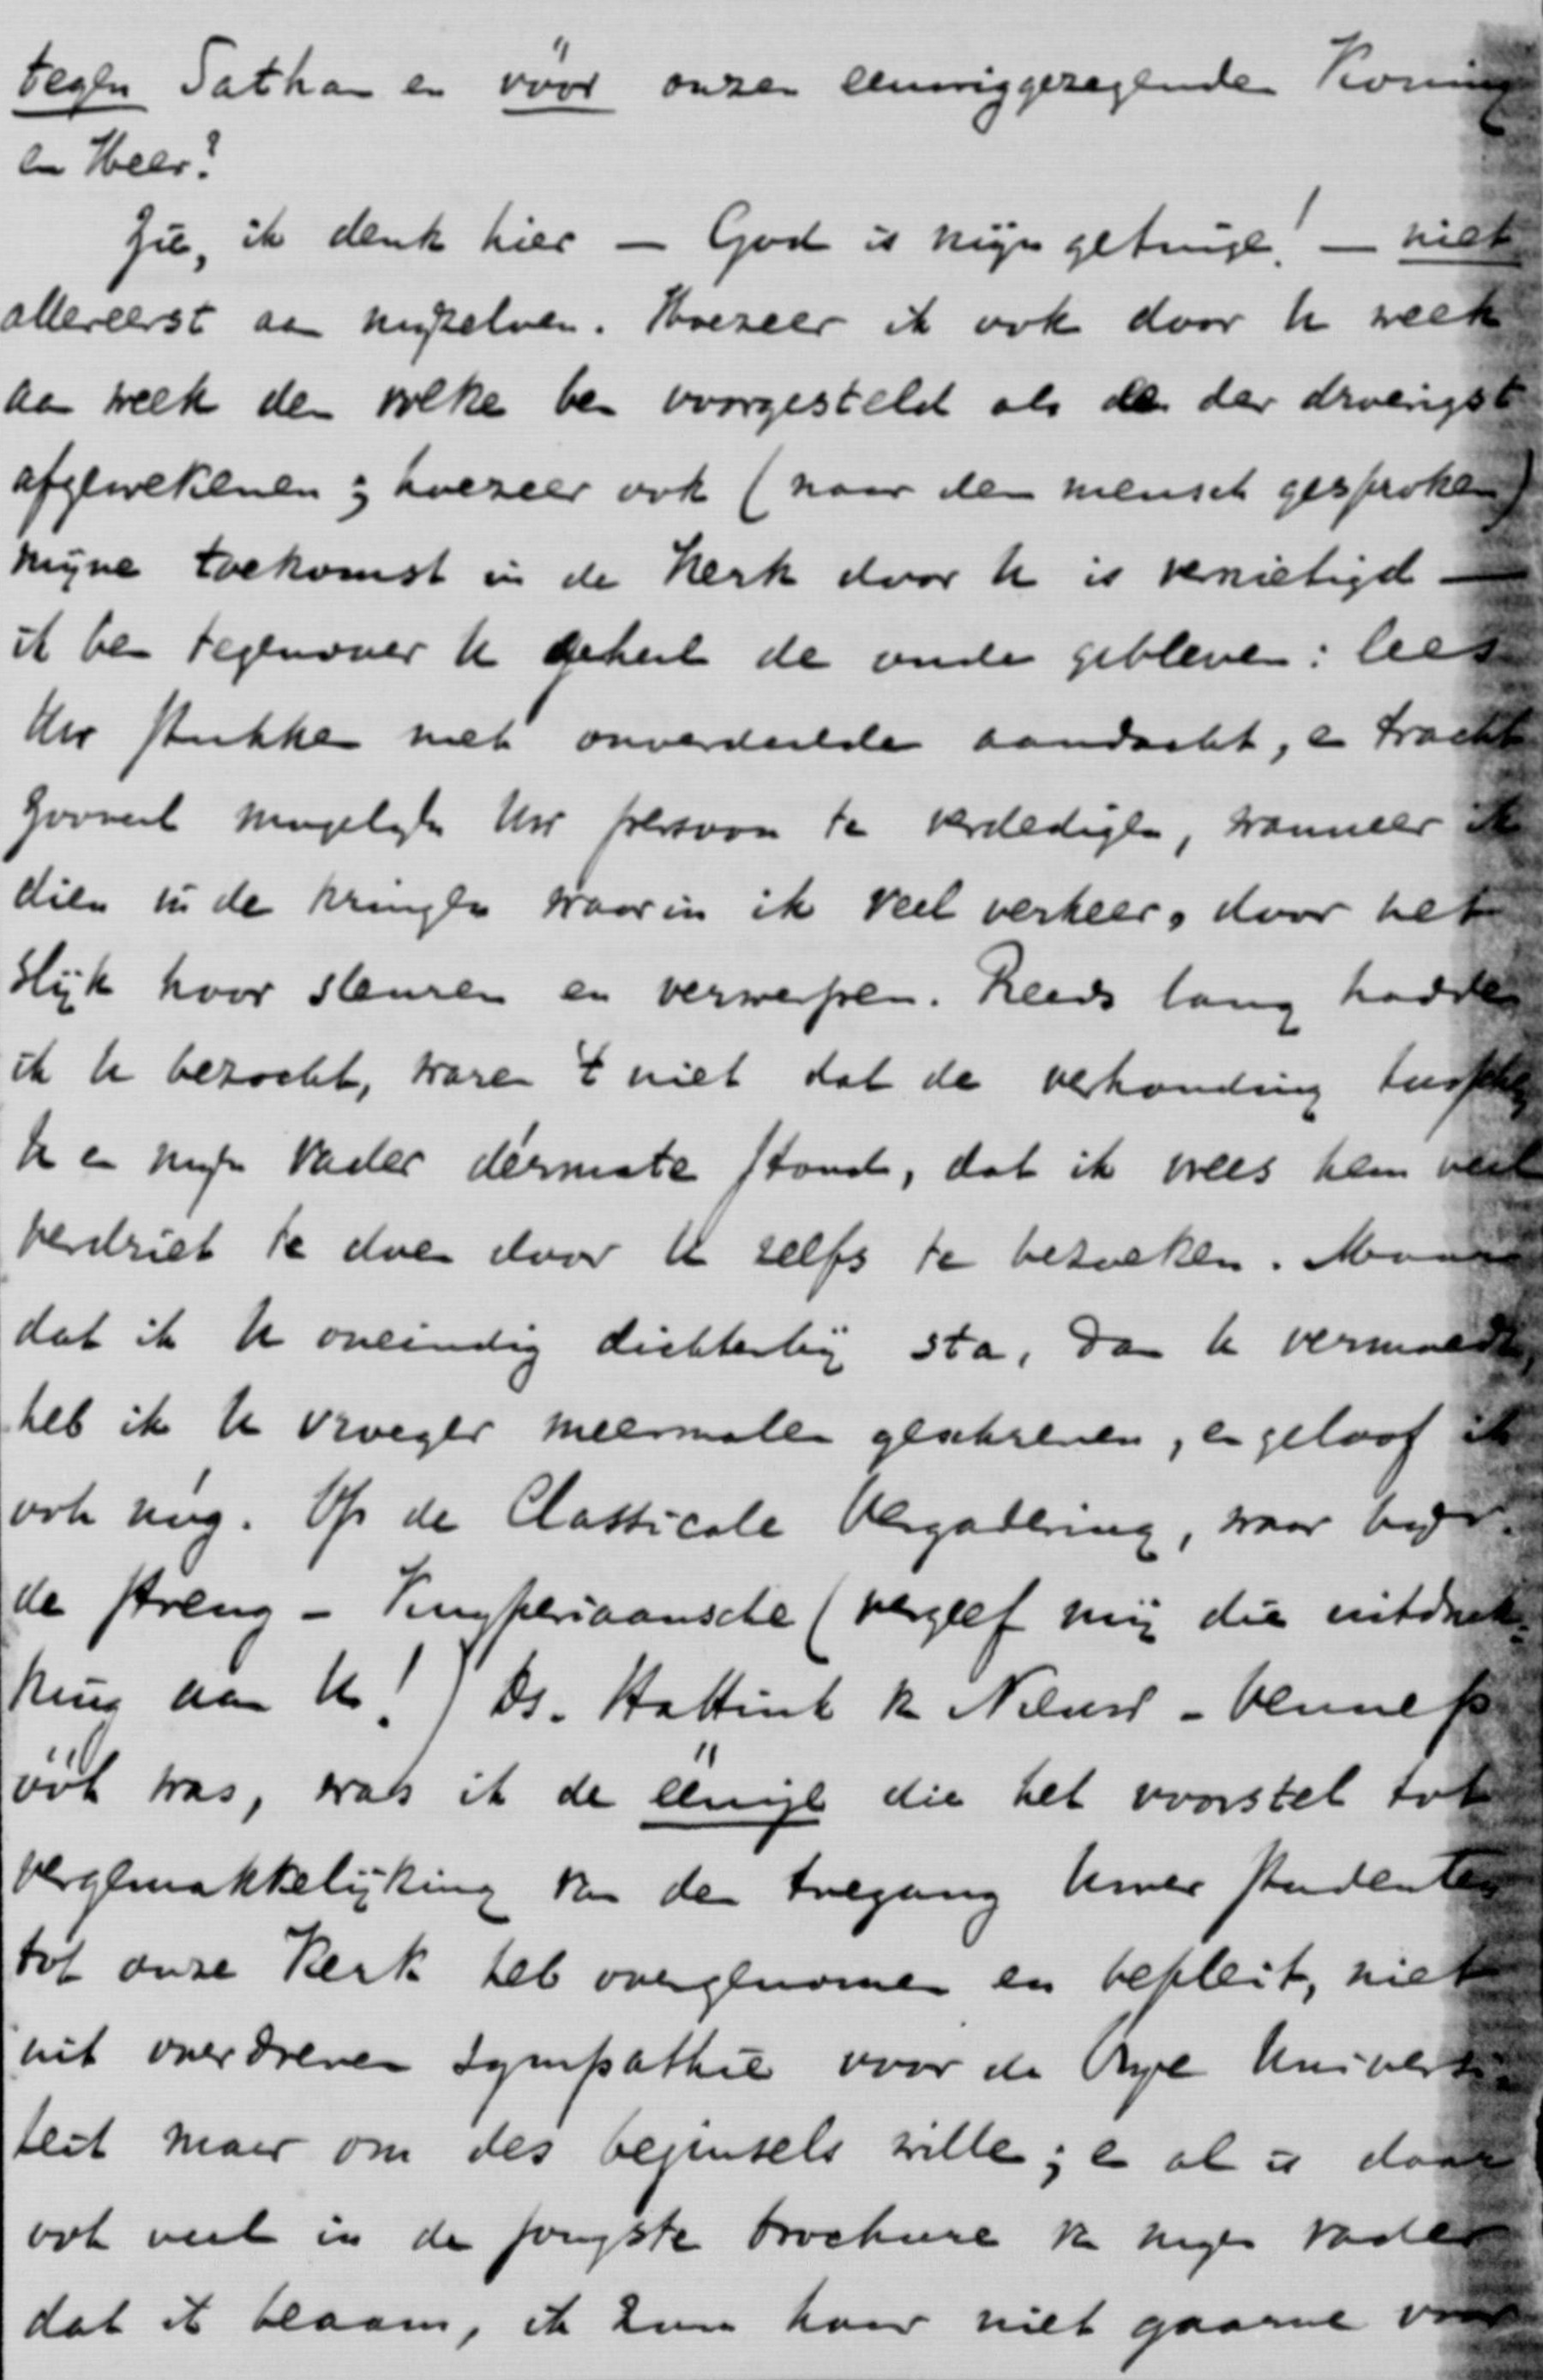 tegen Sathan en vóór onzen eeuwiggezegenden Koning
en Heer?
Zie, ik denk hier — God is mijn getuige! — niet
allereerst aan mijzelven. Hoezeer ik ook door U week
aan week den volke ben voorgesteld als een der droevigst
afgewekenen; hoezeer ook (naar den mensch gesproken)
mijne toekomst in de Kerk door U is vernietigd —
ik ben tegenover U geheel de oude gebleven: lees
Uw stukken met onverdeelde aandacht, en tracht
zooveel mogelijk Uw persoon te verdedigen, wanneer ik
dien in de kringen waarin ik veel verkeer, door het
slijk hoor sleuren en verwerpen. Reeds lang hadde
ik U bezocht, ware 't niet dat de verhouding tusschen
U en mijn Vader dermate stond, dat ik vrees hem veel
verdriet te doen door U zelfs te bezoeken. Maar
dat ik U oneindig dichterbij sta, dan U vermoedt,
heb ik U vroeger meermalen geschreven, en geloof ik
ook nóg. Op de Classicale Vergadering, waar
de streng-Kuyperiaansche (vergeef mij die uitdruk-
king aan U!) Ds. Hattink v. Nieuw-Vennep
óók was, was ik de éénige die het voorstel tot
vergemakkelijking van den toegang Uwer studenten
tot onze Kerk heb overgenomen en bepleit, niet
uit overdreven sympathie voor de Vrije Universi-
teit maar om des beginsels wille; en al is daar
ook veel in de jongste brochure v. mijn Vader
dat ik beaam, ik zou haar niet gaarne voor